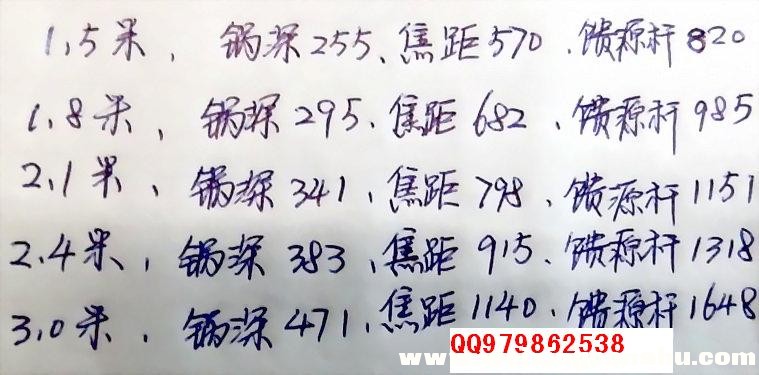 1.5米，锅深255、焦距570、馈源杆820
1.8米，锅深295、焦距682、馈源杆985
2.1米、锅深341、焦距798、馈源杆1151
2.4米，锅深383、焦距915、馈源杆1318
3.0米、锅深471、焦距1140、馈源杆1648
QQ979862538